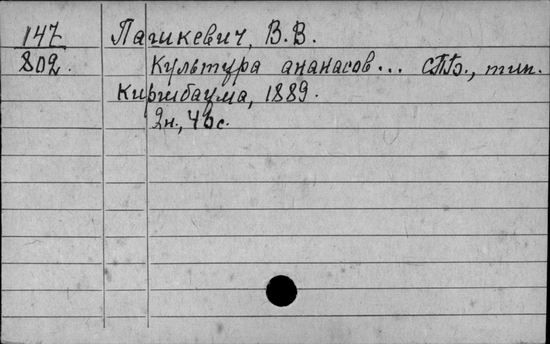 147 Пашкевич, В.В.
802. Культура ананасов... СПб., тип.
Киршбаума, 1889.
2н., 46с.